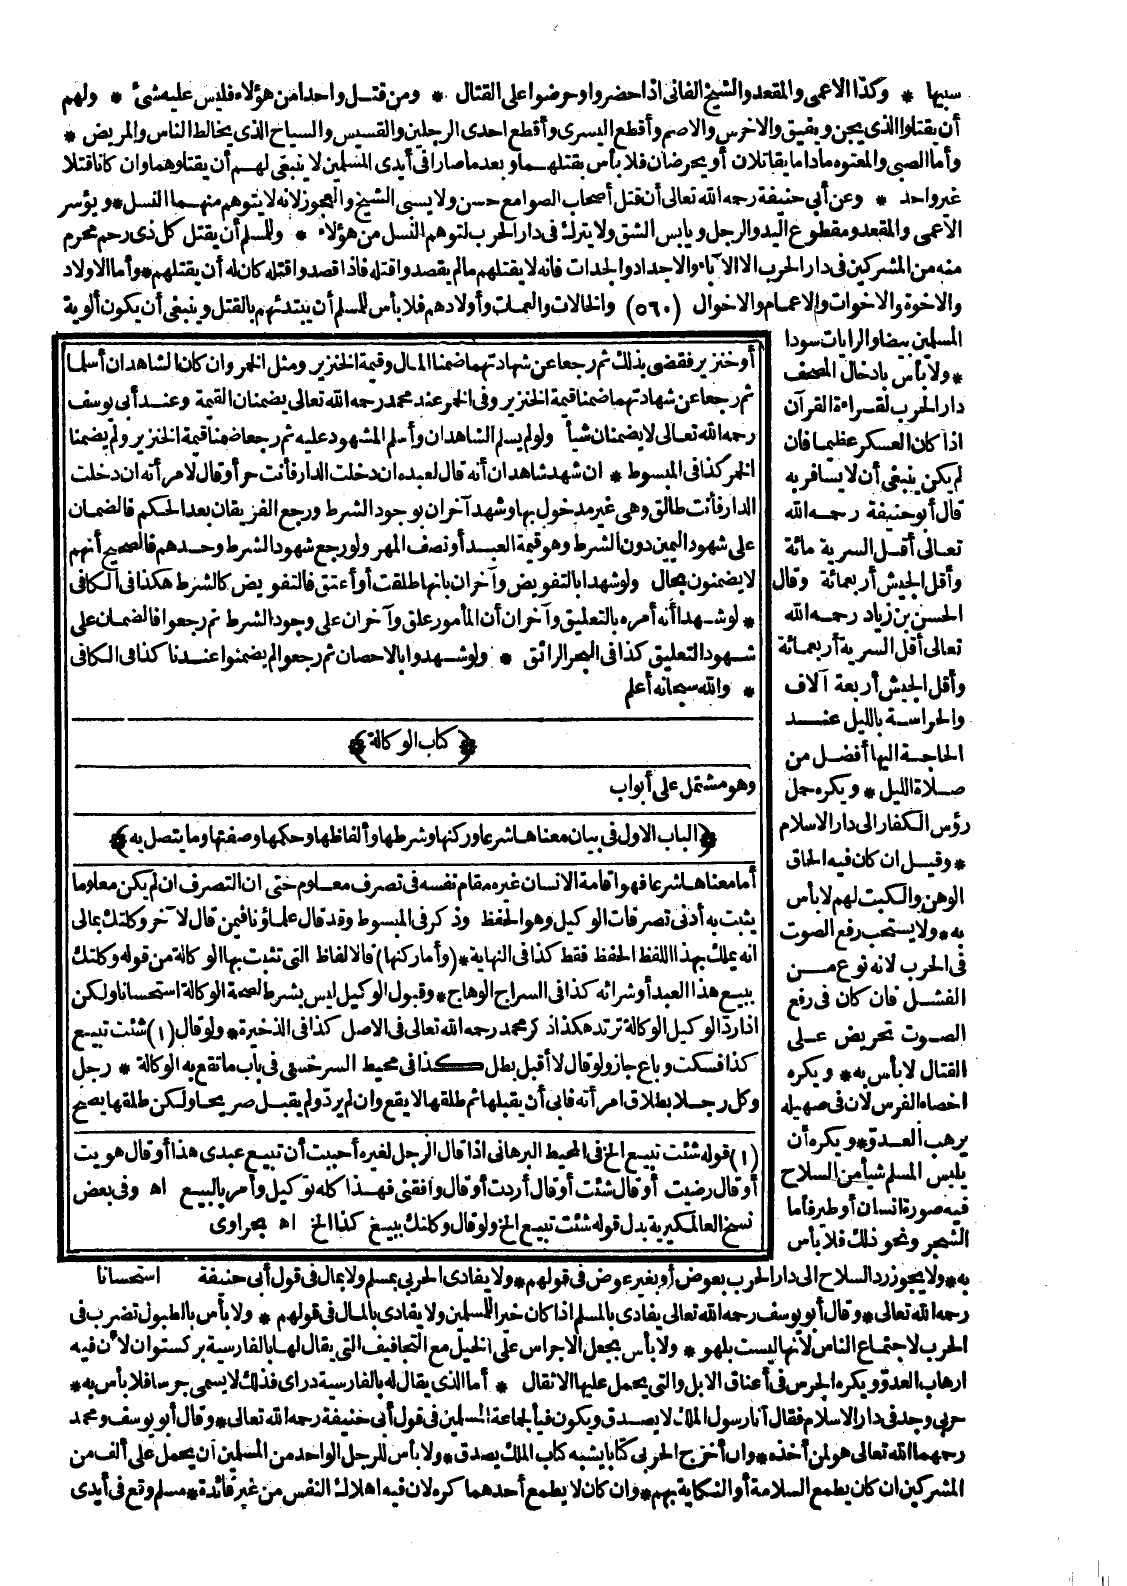 سبيها * وكذا الاعمى والمقعد والشيخ الفانى اذا حضروا وحرضوا على القتال * ومن قتل واحدا من هؤلاء فليس عليه شئ * ولهم
أن يقتلوا الذى يجن ويفيق والاخرس والاصم وأقطع اليسرى وأقطع احدى الرجلين والقسيس والسياح الذى يخالط الناس والمريض *
وأما الصبى والمعتوه مادا ما يقاتلان أو يحرضان فلا بأس بقتلهما وبعد ما صارا فى أيدى المسلمين لا ينبغى لهم أن يقتلوهما وان كانا قتلا
غير واحد * وعن أبى حنيفة رحمه الله تعالى أن قتل أصحاب الصوامع حسن ولا يسبى الشيخ والعجوز لانه لا يتوهم منهما النسل * ويؤسر
الاعمى والمقعد ومقطوع اليد والرجل ويابس الشق ولا يترك فى دار الحرب لتوهم النسل من هؤلاء * وللمسلم أن يقتل كل ذى رحم محرم
منه من المشركين فى دار الحرب الا الآباء والاجداد والجدات فانه لا يقتلهم ما لم يقصدوا قتله فاذا قصدوا قتله كان له أن يقتلهم * وأما الاولاد
والاخوة والاخوات والاعمام والاخوال (٥٦٠) والخالات والعمات وأولادهم فلا بأس للمسلم أن يبتدئهم بالقتل وينبغى أن يكون ألوية
المسلمين بيضا والرايات سودا
* ولا بأس بادخال المصحف
دار الحرب لقراءة القرآن
اذا كان العسكر عظيما فان
لم يكن ينبغى أن لا يسافر به
قال أبو حنيفة رحمه الله
تعالى أقل السرية مائة
وأقل الجيش أربعمائة وقال
الحسن بن زياد رحمه الله
تعالى أقل السرية أربعمائة
وأقل الجيش أربعة آلاف
والحراسة بالليل عند
الحاجة اليها أفضل من
صلاة الليل * ويكره حمل
رؤس الكفار الى دار الاسلام
* وقيل ان كان فيه الحاق
الوهن والكبت لهم لا بأس
به * ولا يستحب رفع الصوت
فى الحرب لانه نوع من
الفشل فان كان فى رفع
الصوت تحريض على
القتال لا بأس به * ويكره
اخصاء الفرس لان فى صهيله
يرهب العدو * ويكره أن
يلبس المسلم شيأ من السلاح
فيه صورة انسان أو طير فأما
الشجر ونحو ذلك فلا بأس
أو خنزير فقضى بذلك ثم رجعا عن شهادتهما ضمنا المال وقيمة الخنزير ومثل الخمر وان كان الشاهدان أسلما
ثم رجعا عن شهادتهما ضمنا قيمة الخنزير وفى الخمر عند محمد رحمه الله تعالى يضمنان القيمة وعند أبى يوسف
رحمه الله تعالى لا يضمنان شيأ ولو لم يسلم الشاهدان وأسلم المشهود عليه ثم رجعا ضمنا قيمة الخنزير ولم يضمنا
الخمر كذا فى المبسوط * ان شهد شاهدان أنه قال لعبده ان دخلت الدار فأنت حر أو قال لامرأته ان دخلت
الدار فأنت طالق وهى غير مدخول بها وشهد آخران بوجود الشرط ورجع الفريقان بعد الحكم فالضمان
على شهود اليمين دون الشرط وهو قيمة العبد أو نصف المهر ولو رجع شهود الشرط وحدهم فالصحيح أنهم
لا يضمنون بحال ولو شهدا بالتفويض وآخران بانها طلقت أو أعتق فالتفويض كالشرط هكذا فى الكافى
* لو شهدا أنه أمره بالتعليق وآخران أن المأمور علق وآخران على وجود الشرط ثم رجعوا فالضمان على
شهود التعليق كذا فى البحر الرائق * ولو شهدوا بالاحصان ثم رجعوا لم يضمنوا عندنا كذا فى الكافى
* والله سبحانه أعلم
﴿كتاب الوكالة﴾
وهو مشتمل على أبواب
﴿الباب الاول فى بيان معناها شرعا وركنها وشرطها وألفاظها وحكمها وصفتها وما يتصل به﴾
أما معناها شرعا فهو اقامة الانسان غيره مقام نفسه فى تصرف معلوم حتى ان التصرف ان لم يكن معلوما
يثبت به أدنى تصرفات الوكيل وهو الحفظ وذكر فى المبسوط وقد قال علماؤنا فيمن قال لآخر وكلتك بمالى
انه يملك بهذا اللفظ الحفظ فقط كذا فى النهاية * (وأما ركنها) فالالفاظ التى تثبت بها الوكالة من قوله وكلتك
ببيع هذا العبد أو شرائه كذا فى السراج الوهاج * وقبول الوكيل ليس بشرط لصحة الوكالة استحسانا ولكن
اذا رد الوكيل الوكالة ترتد هكذا ذكر محمد رحمه الله تعالى فى الاصل كذا فى الذخيرة * ولو قال (١) شئت تبيع
كذا فسكت وباع جاز ولو قال لا أقبل بطل كذا فى محيط السرخسى فى باب ما تقع به الوكالة * رجل
وكل رجلا بطلاق امرأته فابى أن يقبلها ثم طلقها لا يقع وان لم يرد ولم يقبل صريحا ولكن طلقها يصح
(١) قوله شئت تبيع الخ فى المحيط البرهانى اذا قال الرجل لغيره أحببت أن تبيع عبدى هذا أو قال هويت
أو قال رضيت أو قال شئت أو قال أردت أو قال وافقنى فهذا كله توكيل وأمر بالبيع اه وفى بعض
نسخ العالمكيرية بدل قوله شئت تبيع الخ ولو قال وكلتك ببيع كذا الخ اه بحراوى
به * ولا يجوز رد السلاح الى دار الحرب بعوض أو بغير عوض فى قولهم * ولا يفادى الحربى بمسلم ولا بمال فى قول أبى حنيفة استحسانا
رحمه الله تعالى * وقال أبو يوسف رحمه الله تعالى يفادى بالمسلم اذا كان خيرا للمسلمين ولا يفادى بالمال فى قولهم * ولا بأس بالطبول تضرب فى
الحرب لاجتماع الناس لانها ليست بلهو * ولا بأس بجعل الاجراس على الخيل مع التجافيف التى يقال لها بالفارسية بركستوان لأن فيه
ارهاب العدو ويكره الجرس فى أعناق الابل والتى يحمل عليها الاثقال * أما الذى يقال له بالفارسية دراى فذلك لا يسمى جرسا فلا بأس به *
حربى وجد فى دار الاسلام فقال أنا رسول الملك لا يصدق ويكون فيأ لجماعة المسلمين فى قول أبى حنيفة رحمه الله تعالى * وقال أبو يوسف ومحمد
رحمهما الله تعالى هو لمن أخذه * وان أخرج الحربى كتابا يشبه كتاب الملك يصدق * ولا بأس للرجل الواحد من المسلمين أن يحمل على ألف من
المشركين ان كان يطمع السلامة أو النكاية بهم * وان كان لا يطمع أحدهما كره لان فيه اهلاك النفس من غير فائدة * مسلم وقع فى أيدى